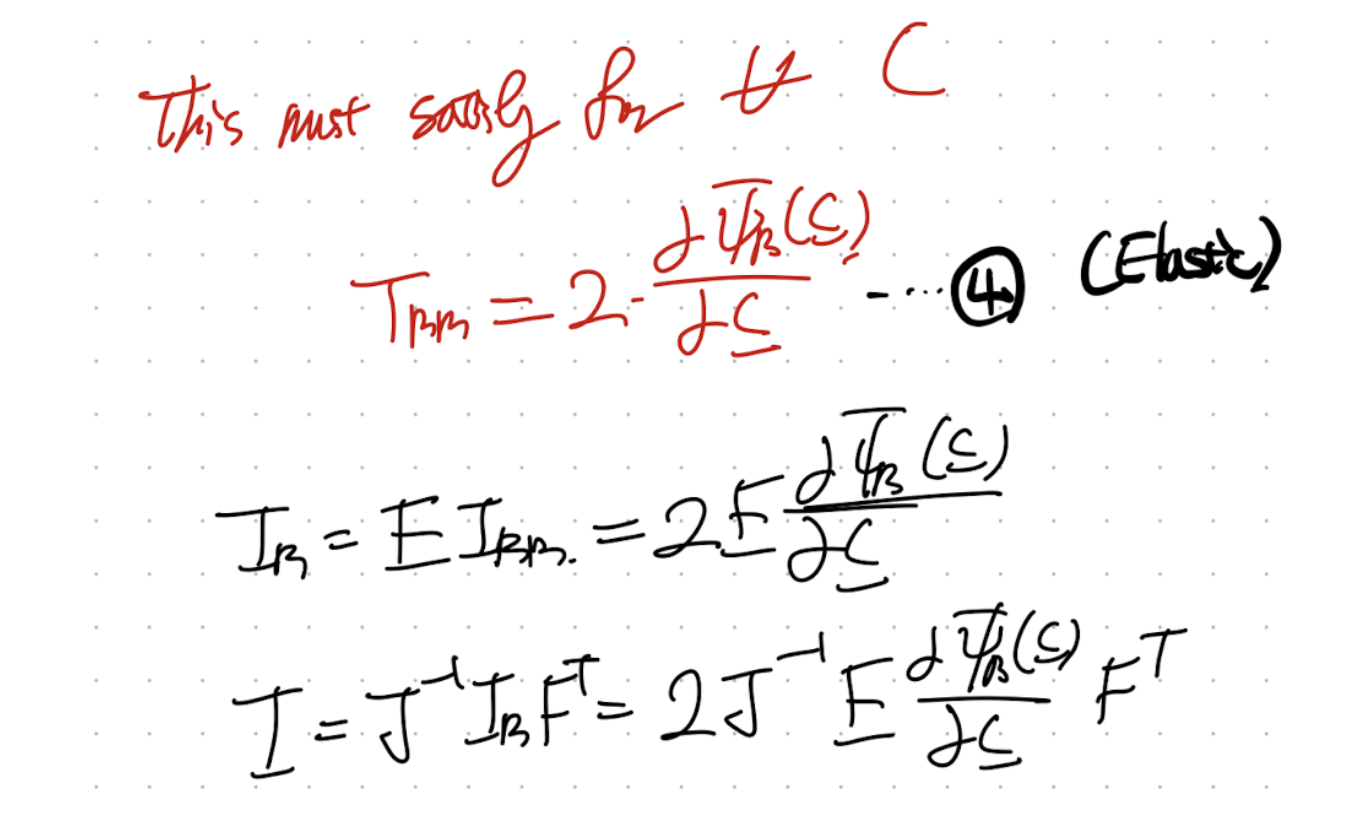 This must satisfy for ∀ C
T_RR = 2 · ∂ψ̄_R(C̲) / ∂C̲ -···· ④ (Elastic)
T̲_R = F̲ T̲_RR. = 2 F̲ ∂ψ̄_R(C̲) / ∂C̲
T̲ = J⁻¹ T̲_R F^T = 2 J⁻¹ F̲ ∂ψ̄_R(C̲) / ∂C̲ F^T